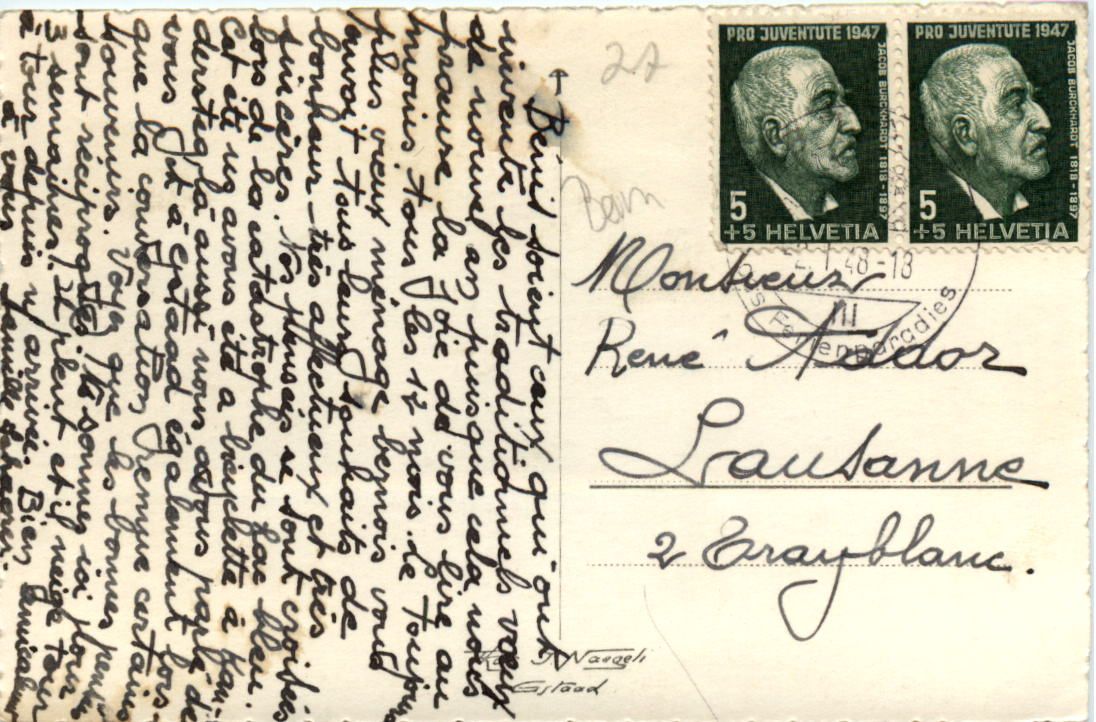 Bénis soient ceux qui ont
inventé les traditionnels vœux
de nouvel an puisque cela nous
procure la joie de vous lire au
moins tous les 12 mois. Le toujours
plus vieux ménage bernois vous
envoit tous leurs souhaits de
bonheur très affectueux et très
sincères. Nos pensées se sont croisées
lors de la catastrophe du lac bleu.
Cet été ns avons été à bicyclette à Kan-
dersteg là aussi nous avons parlé de
vous. Et à Gstaad également lors
que la conversation remue certains
souvenirs. Voyez que les bonnes pensées
sont réciproques. Ns sommes ici pour
3 semaines. Il pleut et il neige tour
à tour depuis n/ arrivée. Bien amicalement
à vous famille
27
Bern
PRO JUVENTUTE 1947
JACOB BURCKHARDT 1818-1897
5
+5 HELVETIA
PRO JUVENTUTE 1947
JACOB BURCKHARDT 1818-1897
5
+5 HELVETIA
2.1.48-18
Ferienparadies
Monsieur
René Addor
Lausanne
2 Trayblanc.
J. Naegeli
Gstaad